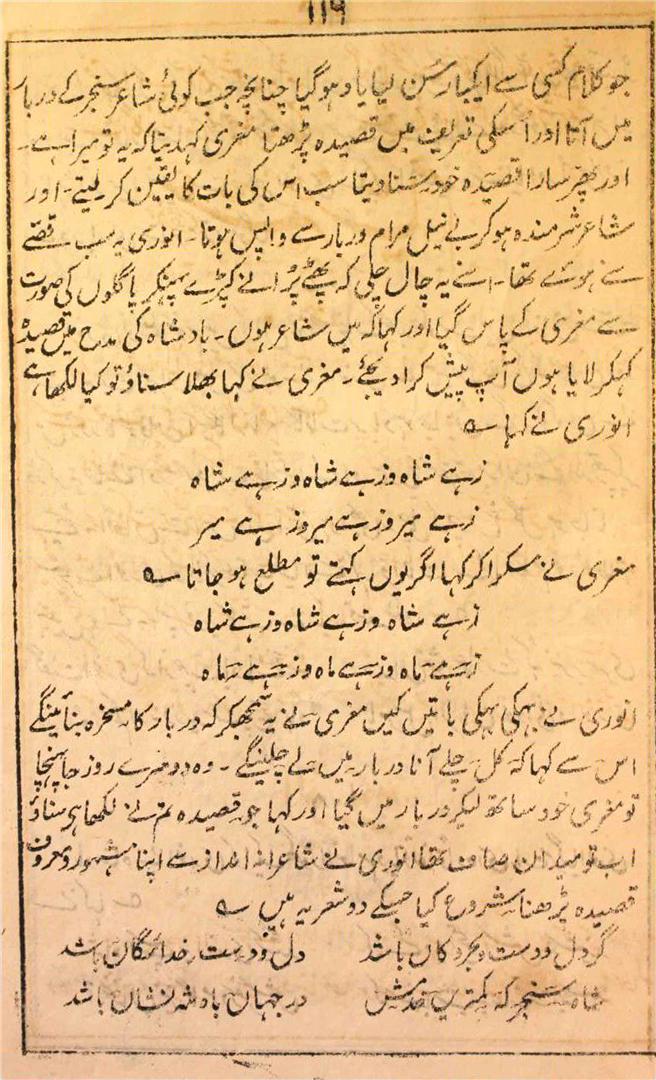 ۱۱۹
جو کلام کسی سے ایکبار سُن لیا یاد ہو گیا چنانچہ جب کوئی شاعر سنجر کے دربار
میں آتا اور اُسکی تعریف میں قصیدہ پڑھتا مغری کہدیتا کہ یہ تو میرا ہے۔
اور پھر سارا قصیدہ خود سُنا دیتا سب اس کی بات کا یقین کر لیتے۔ اور
شاعر شرمندہ ہو کر بے نیل مرام دربار سے واپس ہوتا۔ انوری یہ سب قصّے
سنے ہوئے تھا۔ اسنے یہ چال چلی کہ پھٹے پُرانے کپڑے پہنکر پاگلوں کی صورت
سے مغری کے پاس گیا اور کہا کہ میں شاعر ہوں۔ بادشاہ کی مدح میں قصیدہ
کہکر لایا ہوں آپ پیش کرا دیجئے۔ مغری نے کہا بھلا سناؤ تو کیا لکھا ہے
انوری نے کہا ؎
زہے شاہ و زہے شاہ و زہے شاہ
زہے میر و زہے میر و زہے میر
مغری نے مسکرا کر کہا اگر یوں کہتے تو مطلع ہو جاتا ؎
زہے شاہ و زہے شاہ و زہے شاہ
زہے ماہ و زہے ماہ و زہے ماہ
انوری نے بہکی بہکی باتیں کیں مغری نے یہ سمجھکر کہ دربار کا مسخرہ بنائینگے
اس سے کہا کہ کل چلے آنا دربار میں لے چلینگے۔ وہ دوسرے روز جا پہنچا
تو مغری خود ساتھ لیکر دربار میں گیا اور کہا جو قصیدہ تم نے لکھا ہی سناؤ
اب تو میدان صاف تھا انوری نے شاعرانہ انداز سے اپنا مشہور و معروف
قصیدہ پڑھنا شروع کیا جسکے دو شعر یہ ہیں ؎
گر دل و دست بحر و کاں باشد دل و دست خدائگاں باشد
شاہ سنجر کہ کمتریں خدمش در جہاں بادشہ نشاں باشد